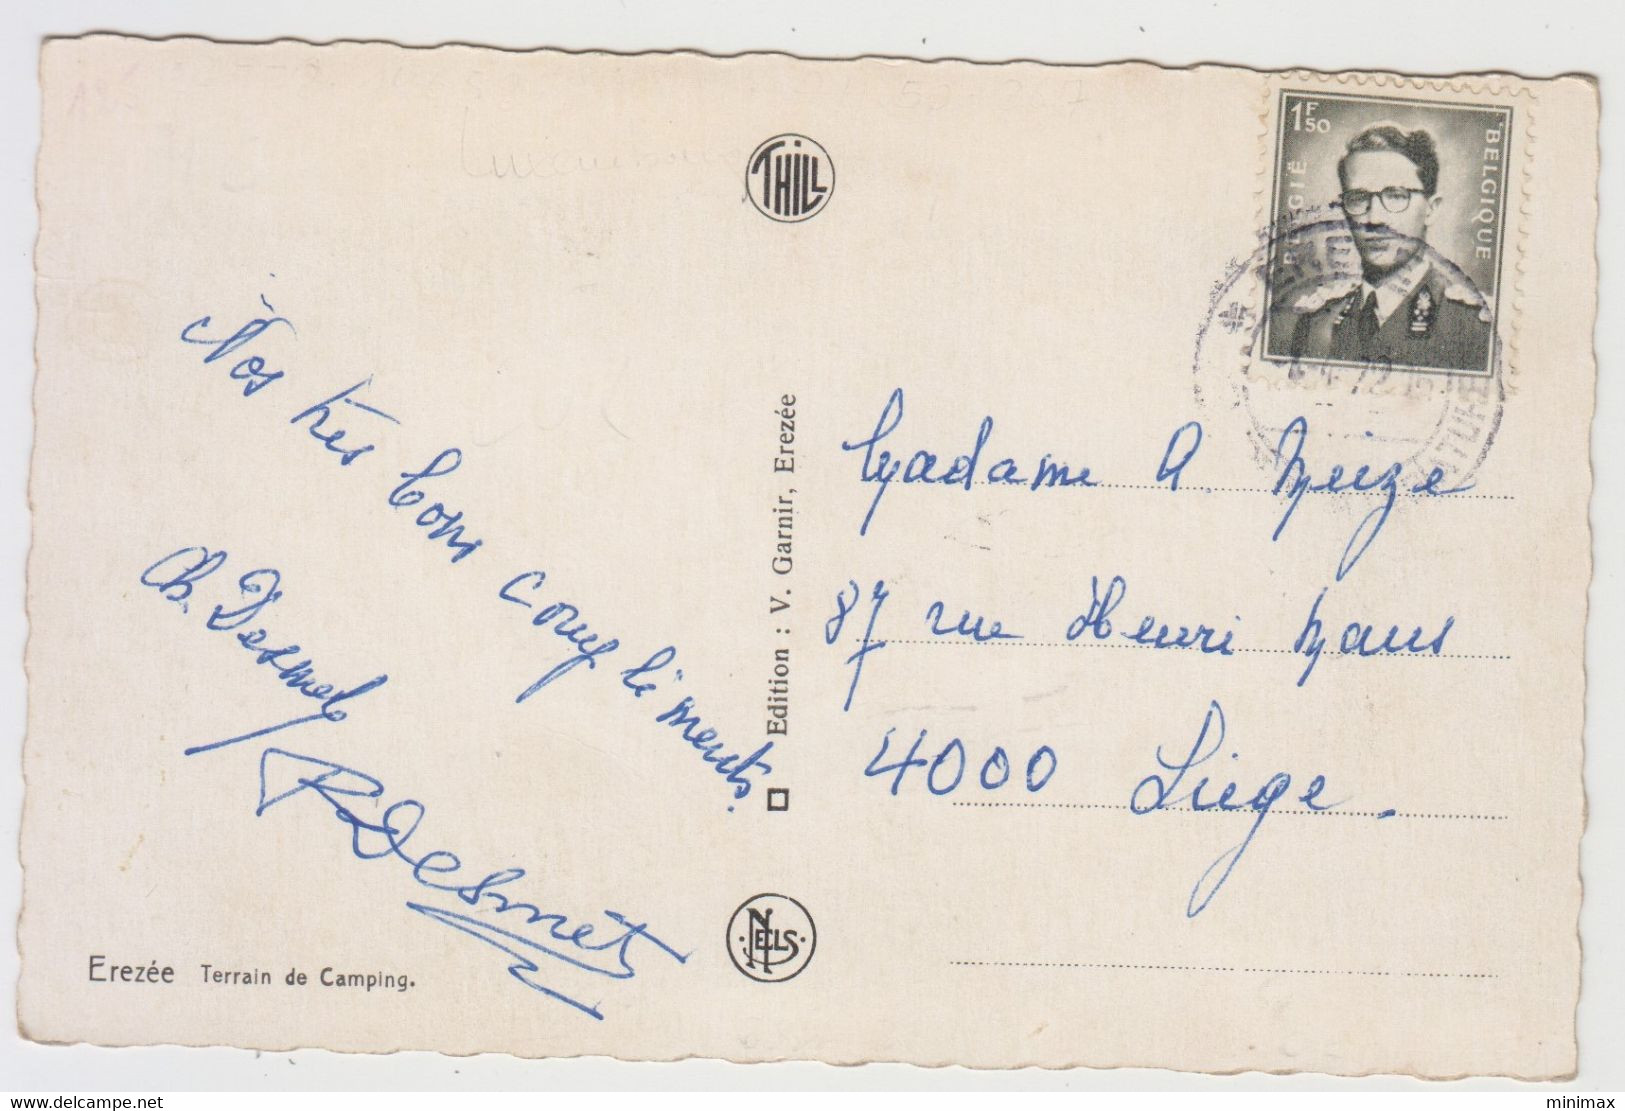 THILL
1F50
BELGIQUE
BELGIË
Nos très bons compliments.
Ch. Desmet
R Desmet
Edition : V. Garnir, Erezée
Madame A.
87 rue Henri Maus
4000 Liège.
NELS
Erezée Terrain de Camping.
www.delcampe.net
minimax